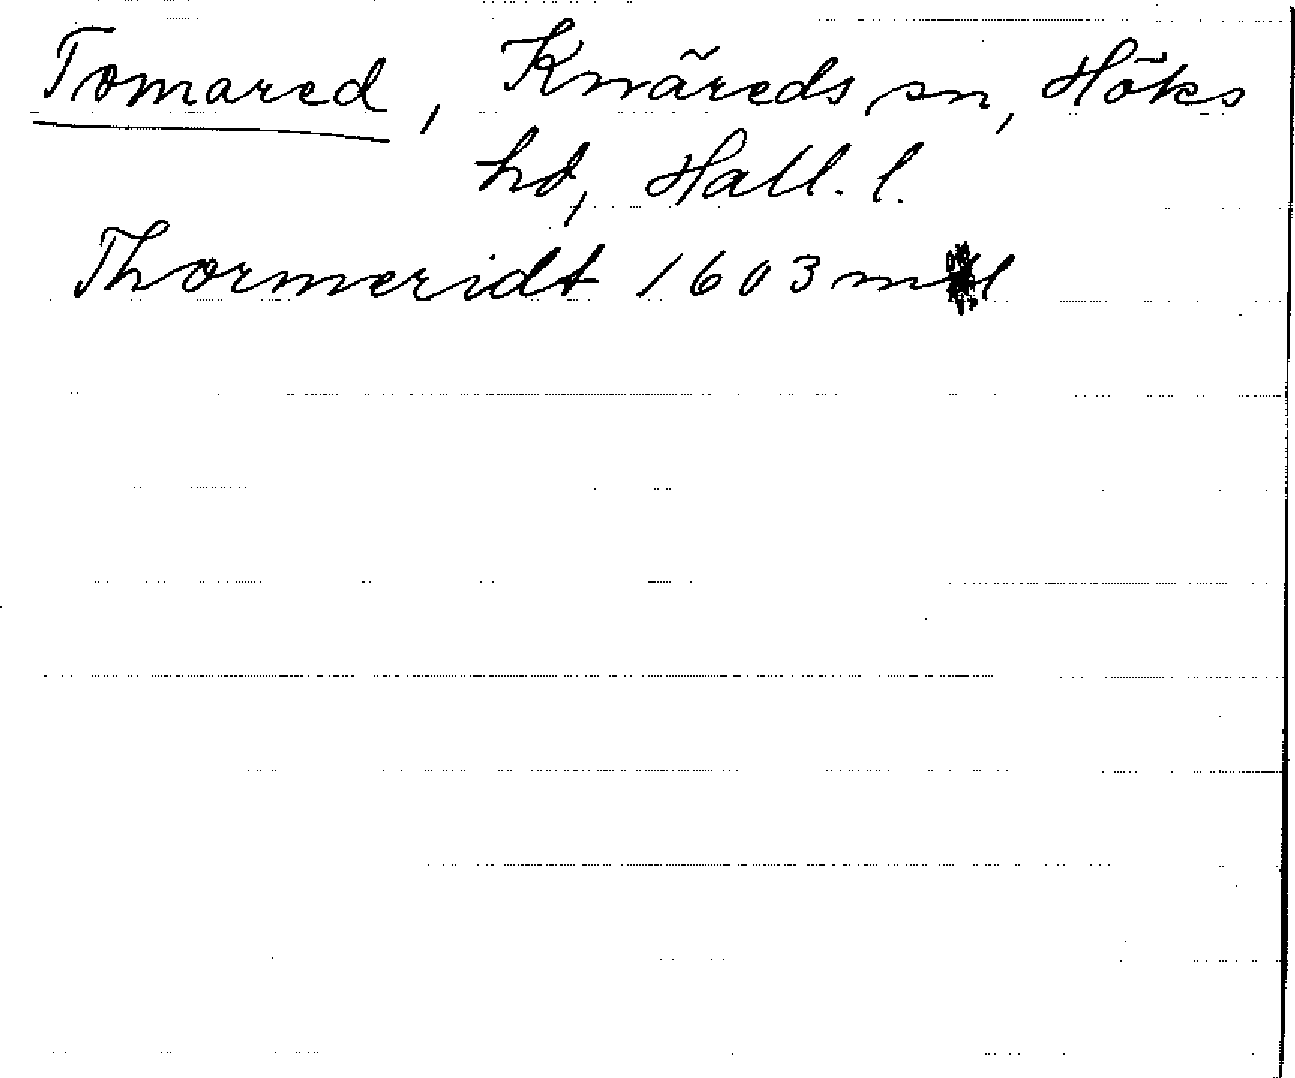 Tomared, Knäreds sn, Höks
hd, Hall. l.
Thormeridt 1603